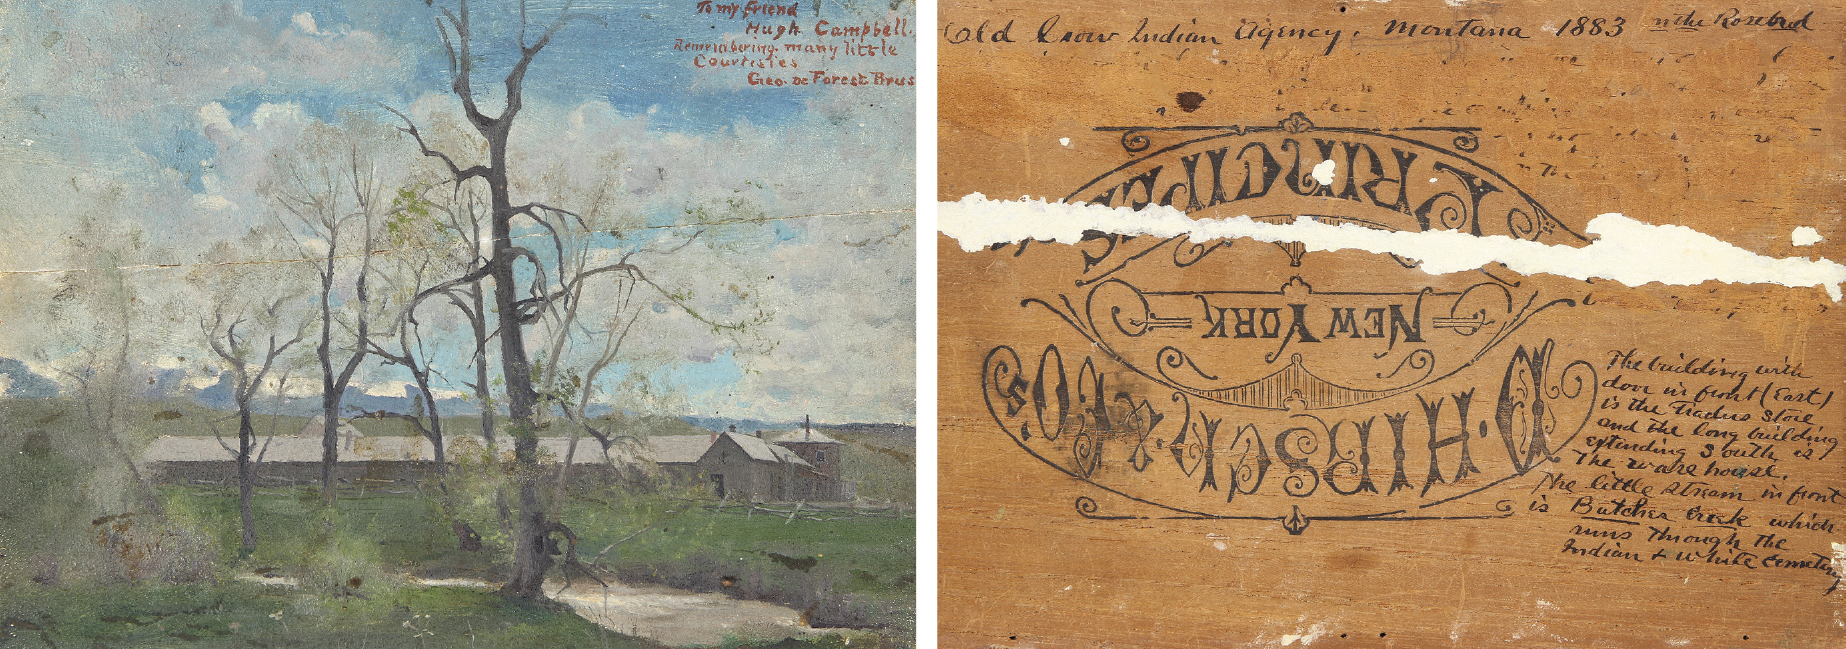 To my friend
Hugh Campbell.
Remembering many little
Courtisies
Geo. de Forest Brus
Old Crow Indian Agency. Montana 1883 on the Rosebud
PRINCIPE
NEW YORK
D. HIRSCH & CO'S
The building with
door in front (East)
is the traders store
and the long building
extending south is
the ware house.
The little stream in front
is Butcher Creek which
runs through the
Indian & White Cemetery